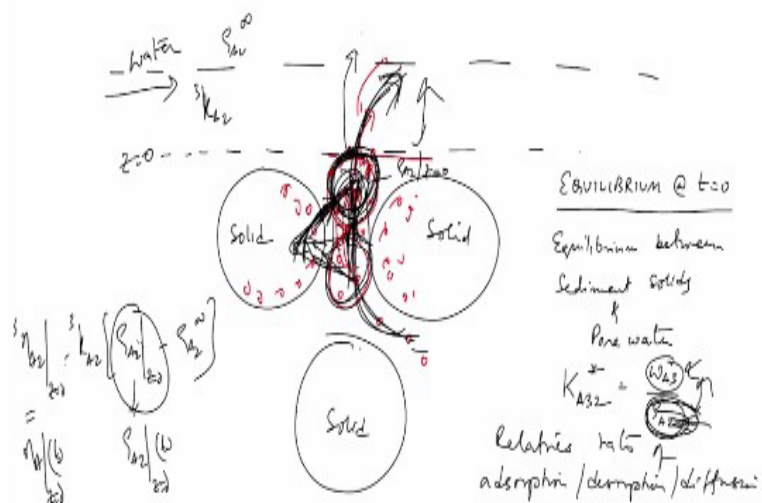 water ρA2^∞
³kA2
z=0
ρA2|z=0
Solid
Solid
Solid
EQUILIBRIUM @ t=0
Equilibrium between
Sediment solids
&
Pore water
K*A32 = wA3
ρA2
Relative rate of
adsorption/desorption/diffusion
³nA2|z=0 = ³kA2 [ρA2|z=0 - ρA2^∞]
=
nA|(t) z=0
ρA2|(t) z=0